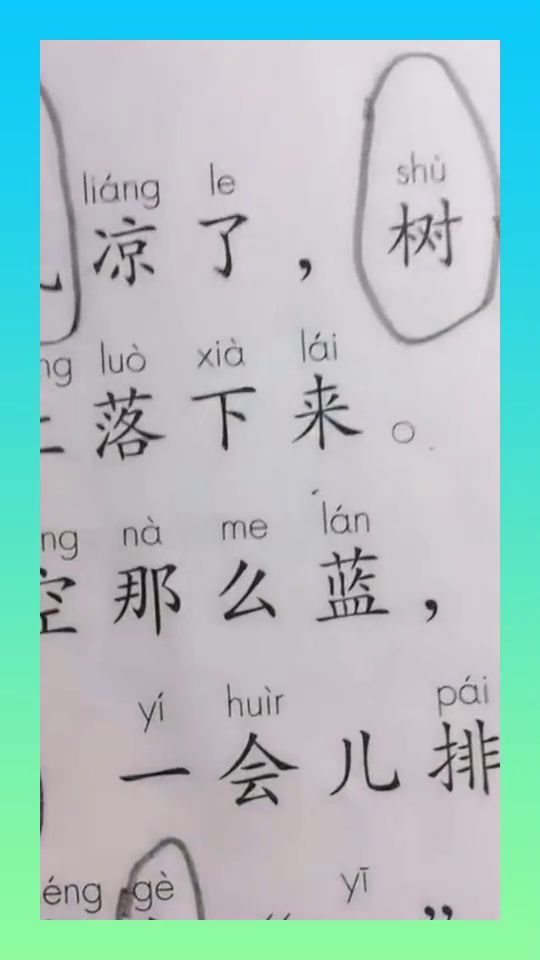 liáng le shù
凉了，树
ng luò xià lái
落下来。
ng nà me lán
空那么蓝，
yí huìr pái
一会儿排
éng gè yī
”